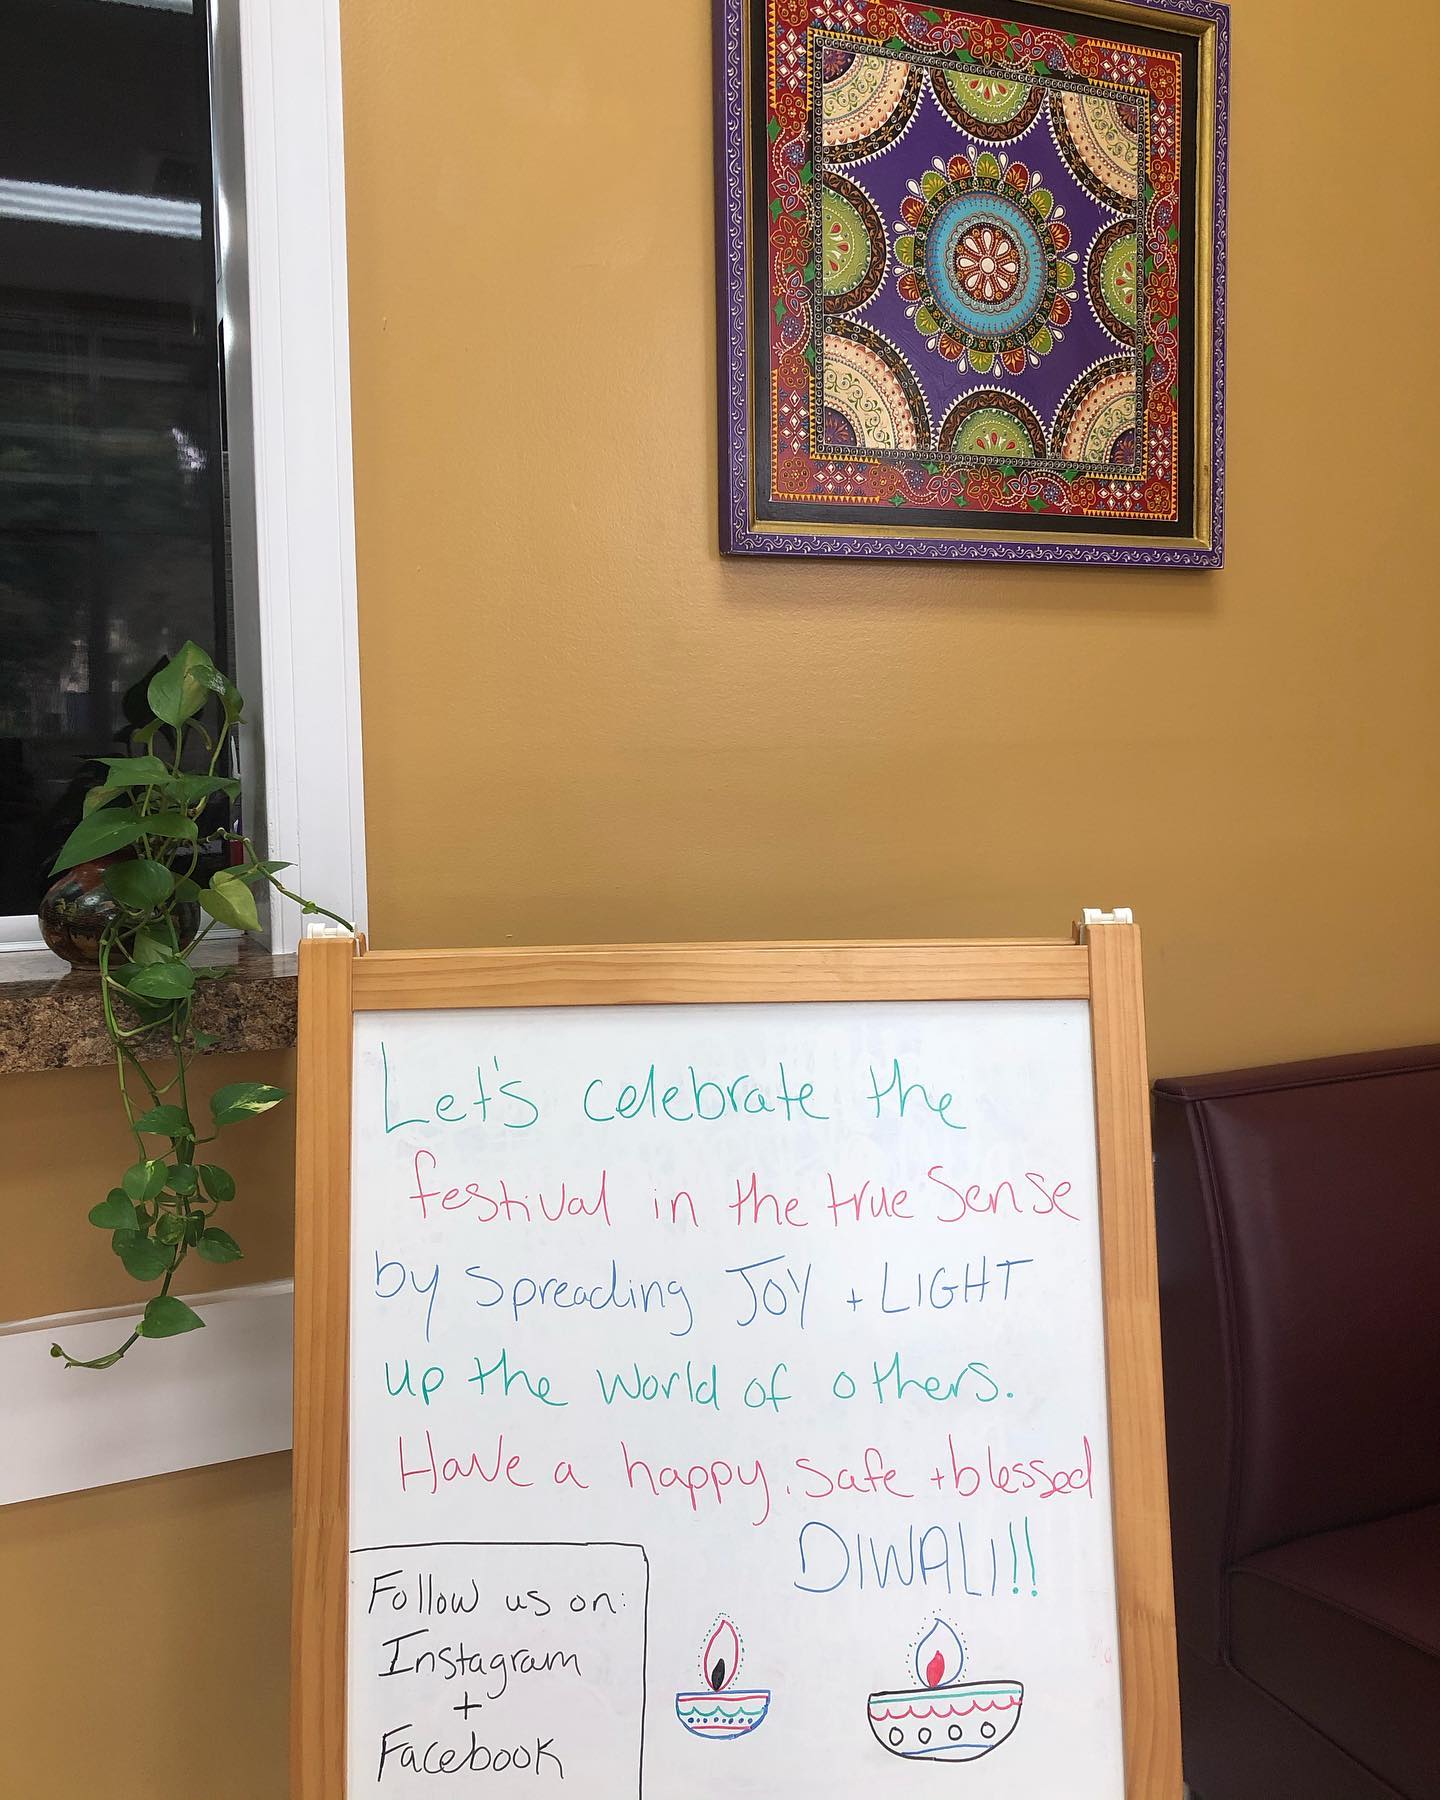 Let's celebrate the
festival in the true Sense
by spreading JOY + LIGHT
up the world of others.
Have a happy, safe + blessed
DIWALI!!
Follow us on:
Instagram
+
Facebook